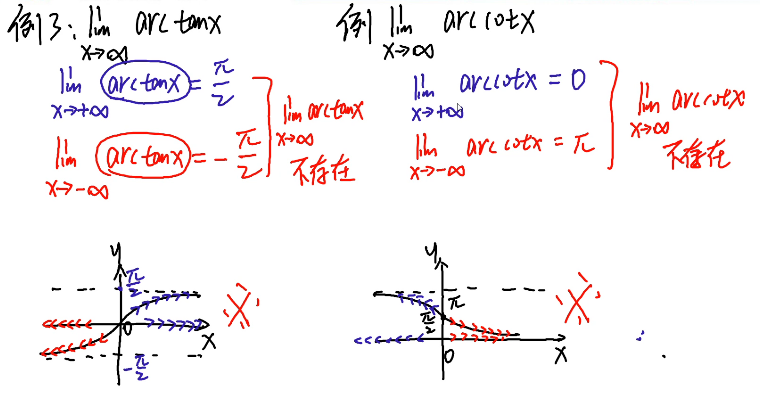 例3: lim x→∞ arctanx
lim x→+∞ arctanx = π/2
lim x→-∞ arctanx = -π/2
lim x→∞ arctanx
不存在
例 lim x→∞ arccotx
lim x→+∞ arccotx = 0
lim x→-∞ arccotx = π
lim x→∞ arccotx
不存在
y
π/2
0
x
-π/2
y
π
π/2
0
x